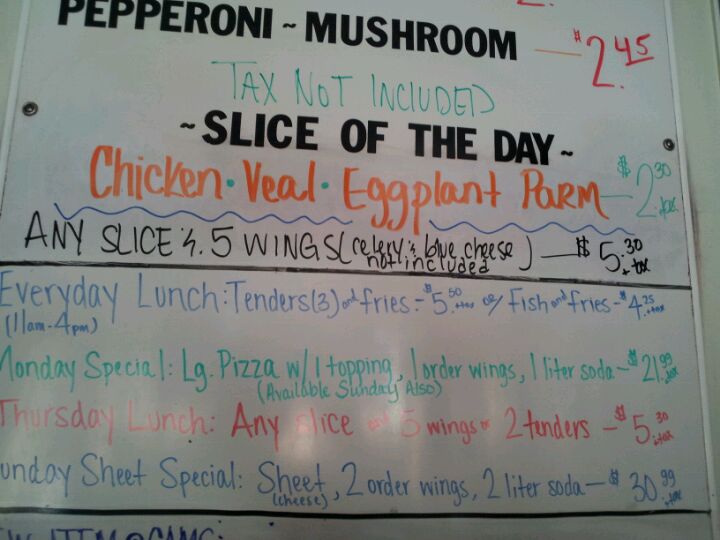 PEPPERONI ~ MUSHROOM — $2.45
TAX NOT INCLUDED
~SLICE OF THE DAY~
Chicken · Veal · Eggplant PARM — $2.30 + tax
ANY SLICE & 5 WINGS (celery & blue cheese not included) — $5.30 + tax
Everyday Lunch: Tenders(3) and fries - $5.50 + tax or Fish and fries - $4.25 + tax
(11am-4pm)
Monday Special: Lg. Pizza w/ 1 topping, 1 order wings, 1 liter soda - $21.99 + tax
(Available Sunday Also)
Thursday Lunch: Any slice and 5 wings or 2 tenders - $5.30 + tax
unday Sheet Special: Sheet, 2 order wings, 2 liter soda — $30.99 + tax
(cheese)